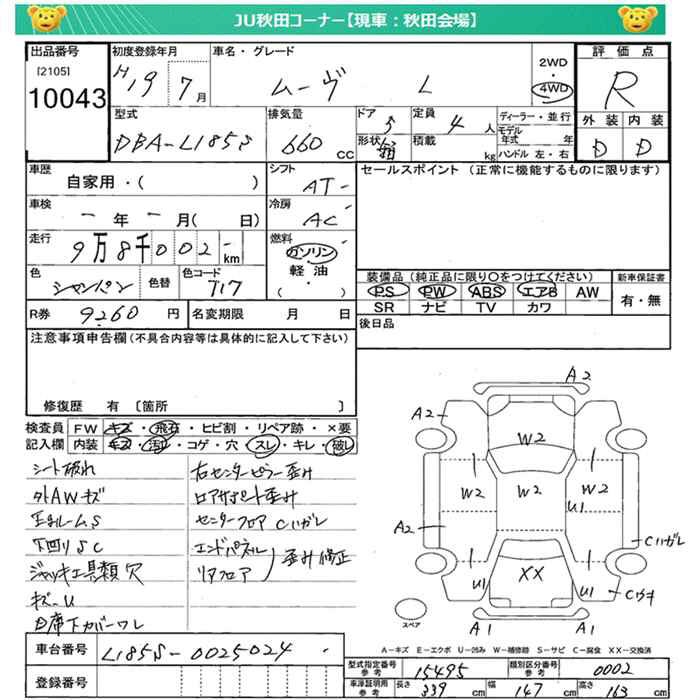 JU秋田コーナー【現車：秋田会場】
出品番号
[2105]
10043
初度登録年月
H19 7月
車名・グレード
ムーヴ L
2WD
4WD
評価点
R
外装 内装
D D
型式
DBA-L185S
排気量
660 CC
ドア 5
形状 箱
定員 4 人
積載 kg
ディーラー・並行
モデル年式 年
ハンドル 左・右
車歴
自家用・( )
シフト
AT
セールスポイント (正常に機能するものに限ります)
車検
年 月( 日)
冷房
AC
走行
9万8千002 km
燃料
ガソリン
軽油
( )
色
シャンパン
色替
色コード
T17
装備品 (純正品に限り○をつけてください)
PS PW ABS エアB AW
SR ナビ TV カワ
新車保証書
有・無
R券 9260 円
名変期限 月 日
後日品
注意事項申告欄 (不具合内容等は具体的に記入して下さい)
修復歴 有 〔箇所 〕
検査員記入欄
FW キズ・飛石・ヒビ割・リペア跡・×要
内装 キズ・汚れ・コゲ・穴・スレ・キレ・破レ
シート破れ
外AWキズ
下回りSC
ジャッキ工具類欠
キズ-U
右センターピラー歪み
ロアサポート歪み
センターフロアCハガレ
エンドパネル
リアフロア
歪み修正
A2
A2
W2
W2
W2
W2
U1
A2
Cハガレ
XX
U1
U1
A1
A1
スペア
A-キズ E-エクボ U-凹み W-補修跡 S-サビ C-腐食 XX-交換済
車台番号
L185S-0025024
登録番号
型式指定番号 参考
15495
類別区分番号 参考
0002
車庫証明用 参考
長さ 339 cm
幅 147 cm
高さ 163 cm